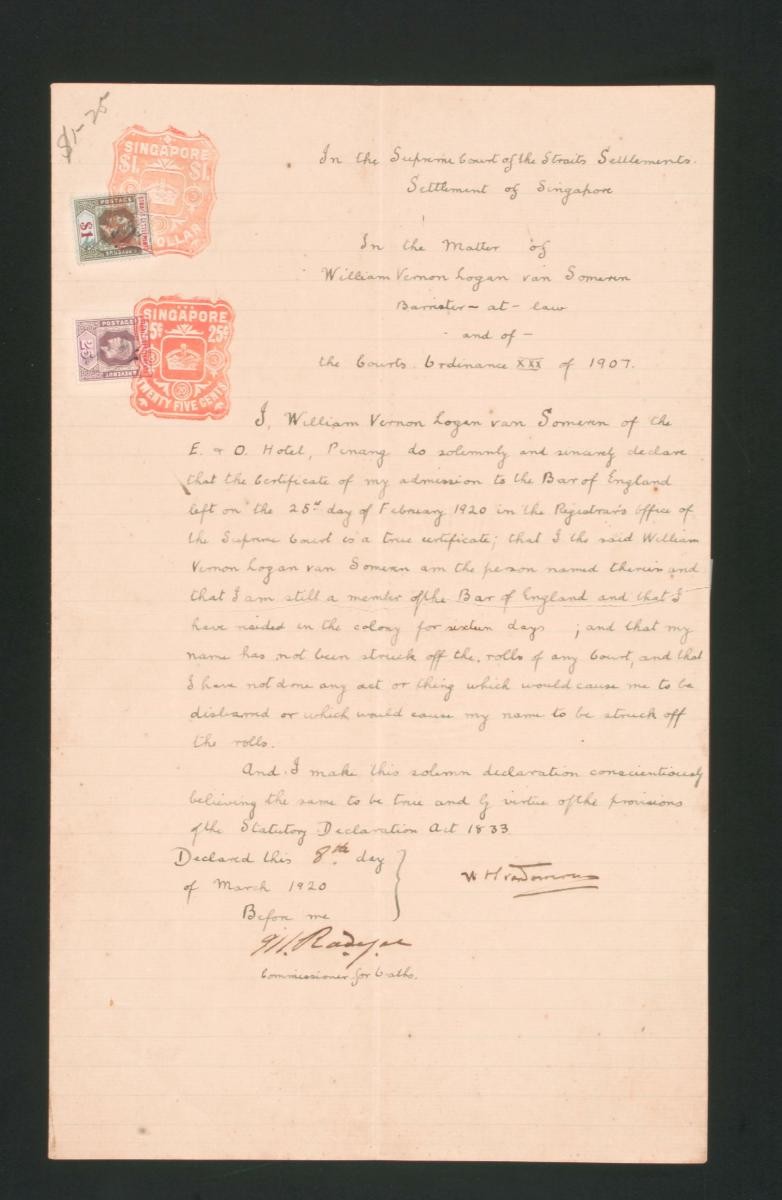 $1-25
SINGAPORE
$1. $1.
DOLLAR
POSTAGE
$1
SINGAPORE
5c 25c
TWENTY FIVE CENTS
POSTAGE
25c
& REVENUE
In the Supreme Court of the Straits Settlements.
Settlement of Singapore
In the Matter of
William Vernon Logan van Someren
Barrister-at-law
and of -
the Courts Ordinance XXX of 1907.
I, William Vernon Logan van Someren of the
E. & O. Hotel, Penang do solemnly and sincerely declare
that the Certificate of my admission to the Bar of England
left on the 25th day of February 1920 in the Registrar's office of
the Supreme Court is a true certificate; that I the said William
Vernon Logan van Someren am the person named therein and
that I am still a member of the Bar of England and that I
have resided in the colony for sixteen days ; and that my
name has not been struck off the rolls of any Court, and that
I have not done any act or thing which would cause me to be
disbarred or which would cause my name to be struck off
the rolls.
And I make this solemn declaration conscientiously
believing the same to be true and by virtue of the provisions
of the Statutory Declaration Act 1833
Declared this 8th day
of March 1920
Before me
van Someren
Commissioner for Oaths.